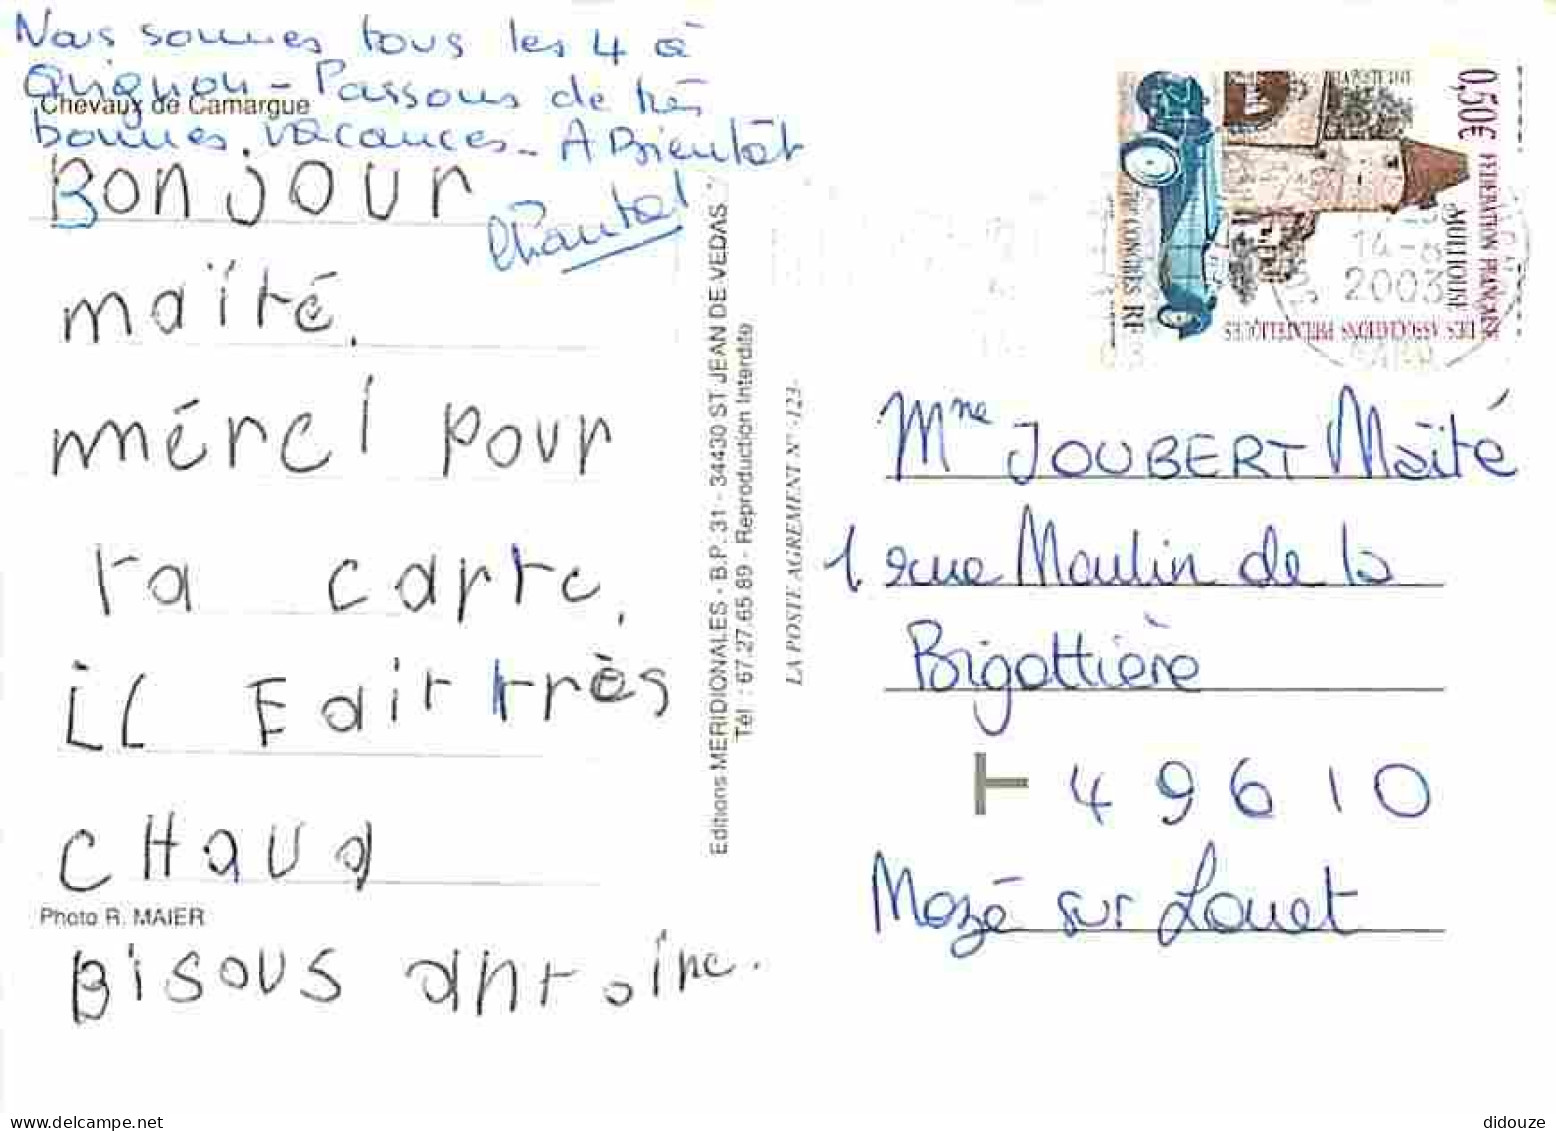 Nous sommes tous les 4 à
Avignon - Passons de très
Chevaux de Camargue
bonnes vacances - A Bientôt
Chantal
Bonjour
maïté.
mérci pour
ta carte.
iL Fait très
CHaud
Photo R. MAIER
Bisous antoine.
Editions MERIDIONALES - B.P. 31 - 34430 ST JEAN DE VEDAS
Tél : 67.27.65.89 - Reproduction Interdite
LA POSTE AGREMENT N° -123-
0,50€
FÉDÉRATION FRANÇAISE
DES ASSOCIATIONS PHILATÉLIQUES
MULHOUSE
CONGRÈS RF
14-8
2003
Mme JOUBERT Maïté
1 rue Moulin de la
Bigottière
T 49610
Mozé sur Louet
didouze